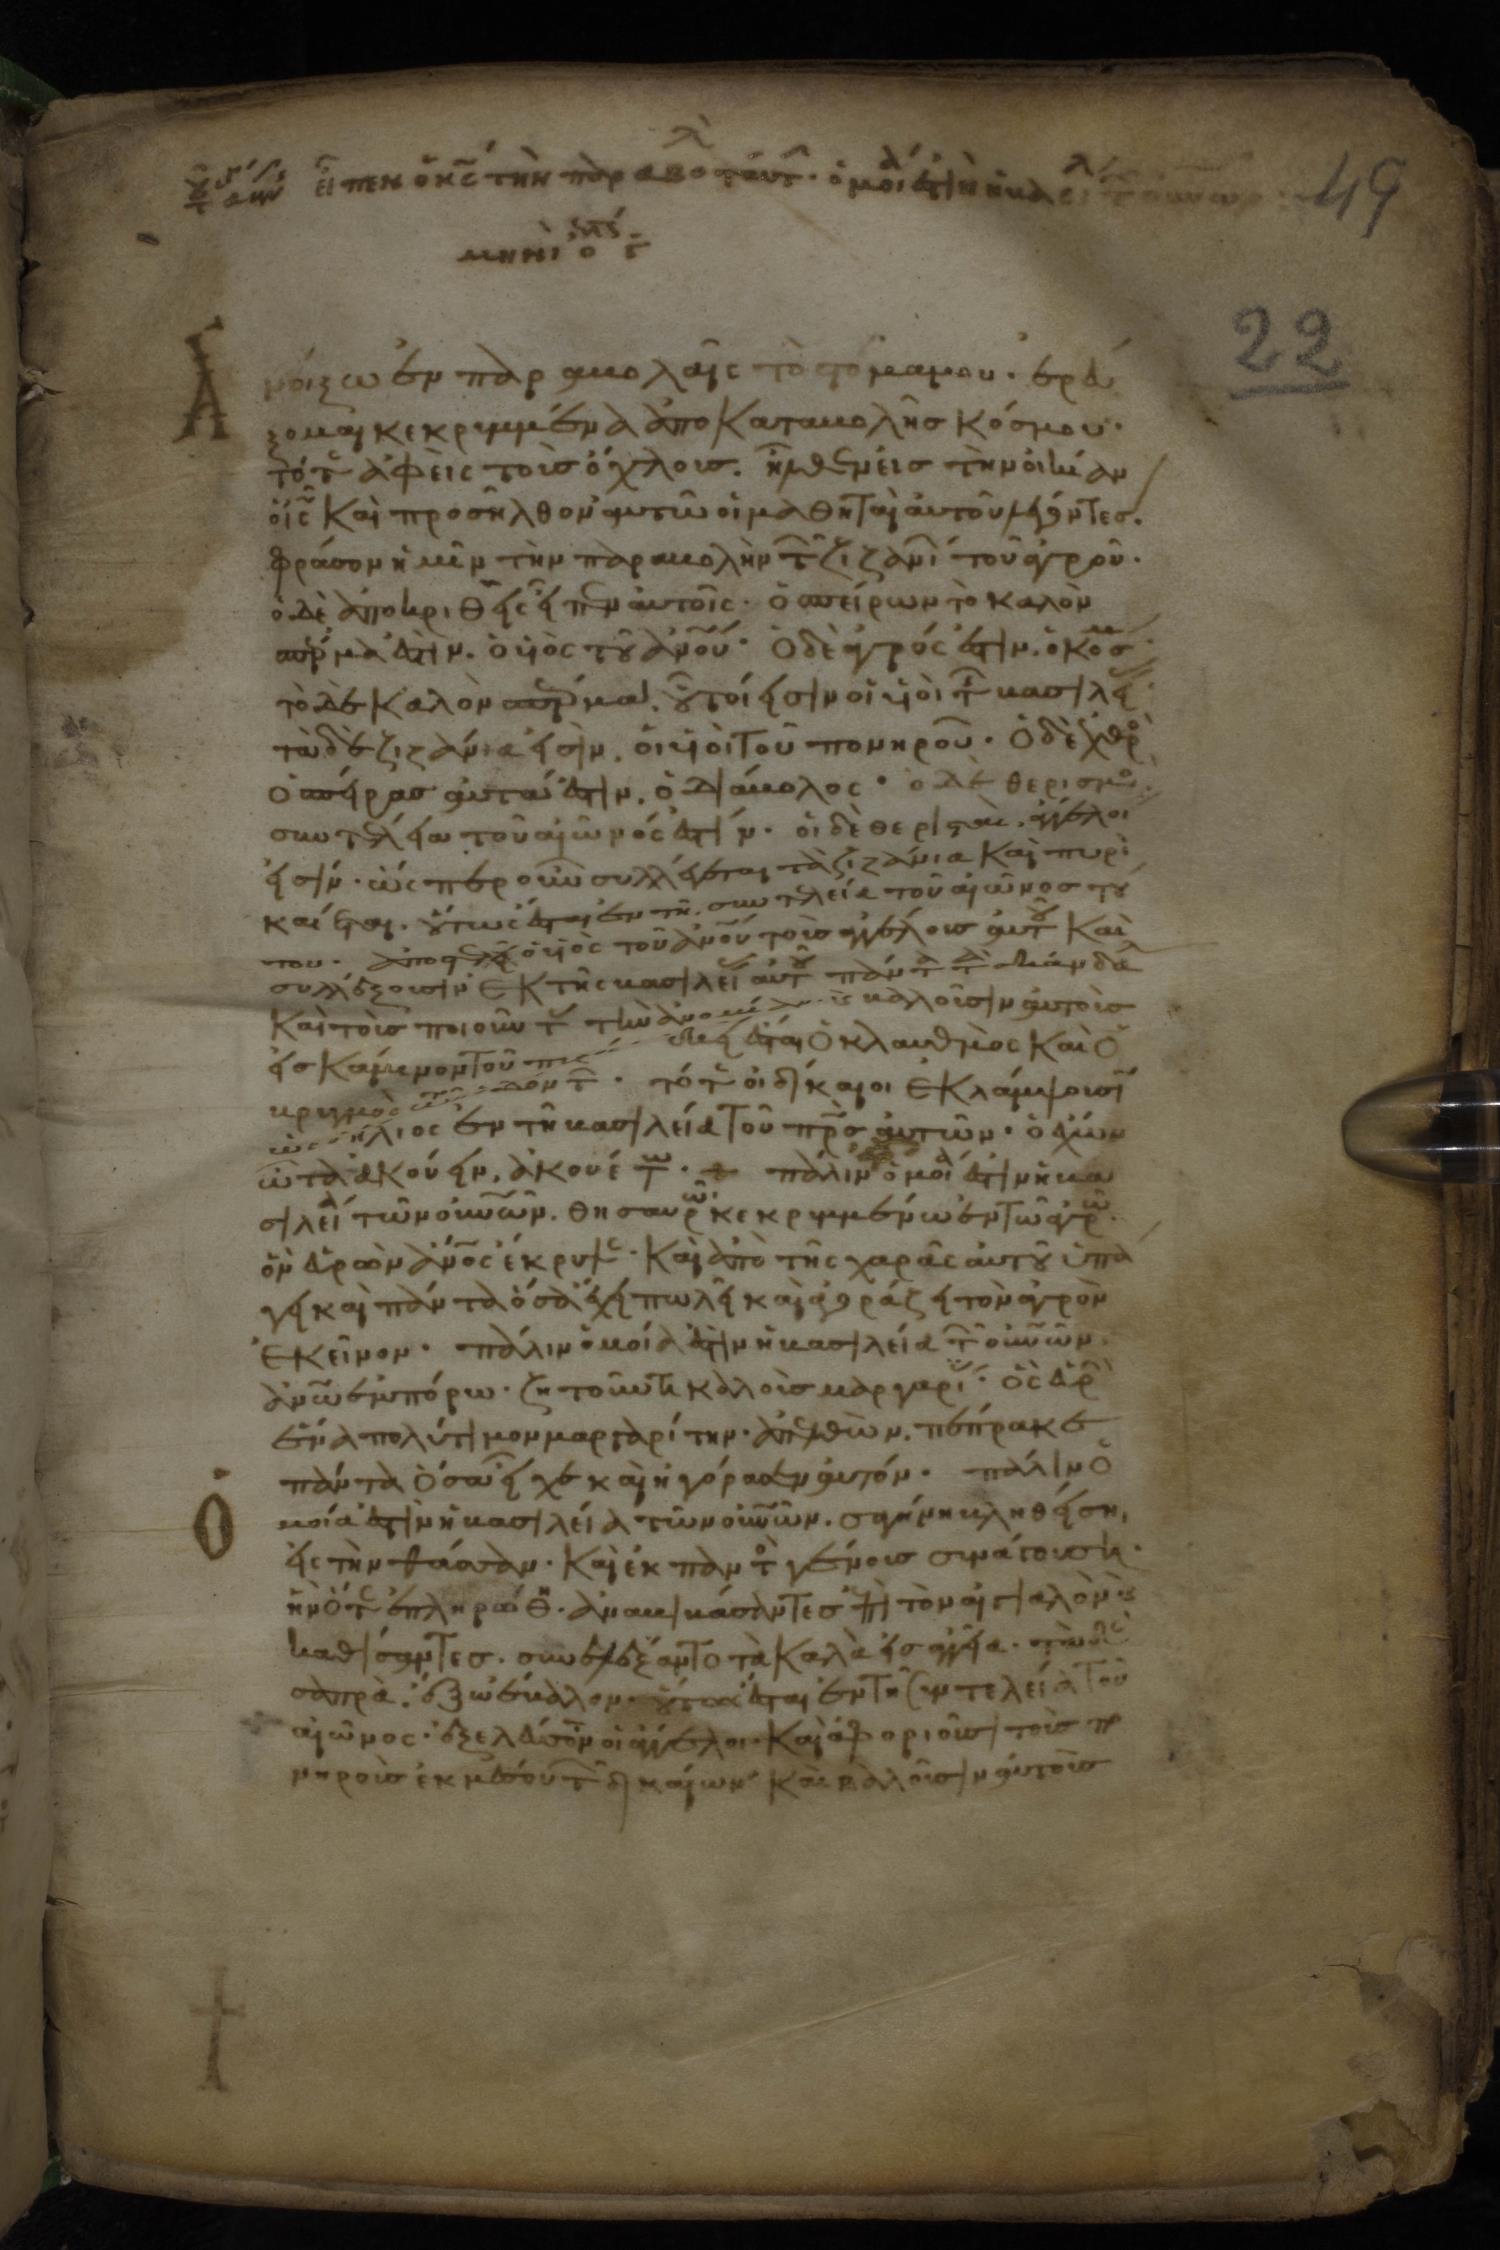 εἶπεν ὁ κς τὴν παραβολ ταύτ· ὁμοία ἐστὶν ἡ βασιλεί
49
22
Ἀνοίξω ἐν παραβολαῖς τὸ στόμα μου· ἐρεύ
ξομαι κεκρυμμένα ἀπὸ καταβολῆς κόσμου·
τότε ἀφεὶς τοὺς ὄχλους. ἦλθεν εἰς τὴν οἰκίαν
ὁ ις καὶ προσῆλθον αὐτῶ οἱ μαθηταὶ αὐτοῦ λέγοντες.
φράσον ἡμῖν τὴν παραβολὴν τῶν ζιζανί τοῦ ἀγροῦ·
ὁ δὲ ἀποκριθεὶς εἶπεν αὐτοῖς· ὁ σπείρων τὸ καλὸν
σπέρμα ἐστὶν. ὁ υἱὸς τοῦ ἀνου· ὁ δὲ ἀγρός ἐστιν. ὁ κόσμ
τὸ δὲ καλὸν σπέρμα. οὗτοί εἰσιν οἱ υἱοὶ τῆς βασιλεί
τὰ δὲ ζιζάνια εἰσὶν. οἱ υἱοὶ τοῦ πονηροῦ· ὁ δὲ ἐχθρὸ
ὁ σπείρας αὐτά ἐστιν. ὁ διάβολος· ὁ δὲ θερισμὸ
συντέλεια τοῦ αἰῶνός ἐστίν· οἱ δὲ θερισταὶ. ἄγγελοι
εἰσίν· ὥσπερ οὖν συλλέγεται τὰ ζιζάνια καὶ πυρὶ
καίεται. οὕτως ἔσται ἐν τῆ συντελεία τοῦ αἰῶνος τού
του· ἀποστελεῖ ὁ υἱὸς τοῦ ἀνου τοὺς ἀγγέλους αὐτοῦ καὶ
συλλέξουσιν ἐκ τῆς βασιλεί αὐτοῦ πάντα τὰ σκάνδα
καὶ τοὺς ποιοῦντ τὴν ἀνομίαν· κ βαλοῦσιν αὐτοὺς
εἰς κάμινον τοῦ πυρ ἐκεῖ ἔσται ὁ κλαυθμὸς καὶ ὁ
βρυγμὸς τῶν ὀδόντ· τότε οἱ δίκαιοι ἐκλάμψουσι
ὡς ὁ ἥλιος ἐν τῆ βασιλεία τοῦ πρς αὐτῶν· ὁ ἔχων
ὦτα ἀκούειν, ἀκουέτω· πάλιν ὁμοία ἐστὶν ἡ βα
σιλεία τῶν οὐνῶν. θησαυρῶ κεκρυμμένω ἐν τῶ ἀγρῶ.
ὃν εὑρὼν ἀνος ἔκρυψε· καὶ ἀπὸ τῆς χαρᾶς αὐτοῦ ὑπά
γει καὶ πάντα ὅσα ἔχει πωλεῖ καὶ ἀγοράζει τὸν ἀγρὸν
ἐκεῖνον· πάλιν ὁμοία ἐστὶν ἡ βασιλεία τῶν οὐνῶν.
ἀνω ἐμπόρω· ζητοῦντι καλοὺς μαργαρί· ὃς εὑρὼ
ἕνα πολύτιμον μαργαρίτην· ἀπελθὼν. πέπρακε
πάντα ὅσα εἶχε καὶ ἠγόρασεν αὐτόν· πάλιν ὁ
μοία ἐστὶν ἡ βασιλεία τῶν οὐνῶν. σαγήνη βληθείση,
εἰς τὴν θάλασσαν· καὶ ἐκ παντὸ γένους συναγούση·
ἣν ὅτε ἐπληρώθη· ἀναβιβάσαντες ἐπὶ τὸν αἰγιαλὸν κ
καθίσαντες. συνέλεξαν τὰ καλὰ εἰς ἀγγεῖα· τὰ δὲ
σαπρὰ. ἔξω ἔβαλον· οὕτως ἔσται ἐν τῆ συντελεία τοῦ
αἰῶνος· ἐξελεύσονται οἱ ἄγγελοι· καὶ ἀφοριοῦσι τοὺς πο
νηροὺς ἐκ μέσου τῶν δικαίων· καὶ βαλοῦσιν αὐτοὺς